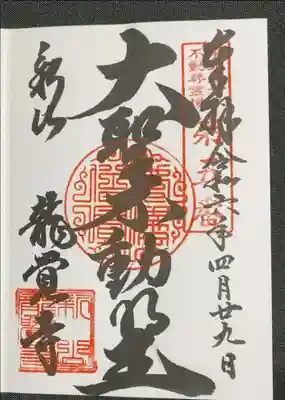 奉拝 令和六年四月廿九日
大聖不動明王
新山
龍覚寺